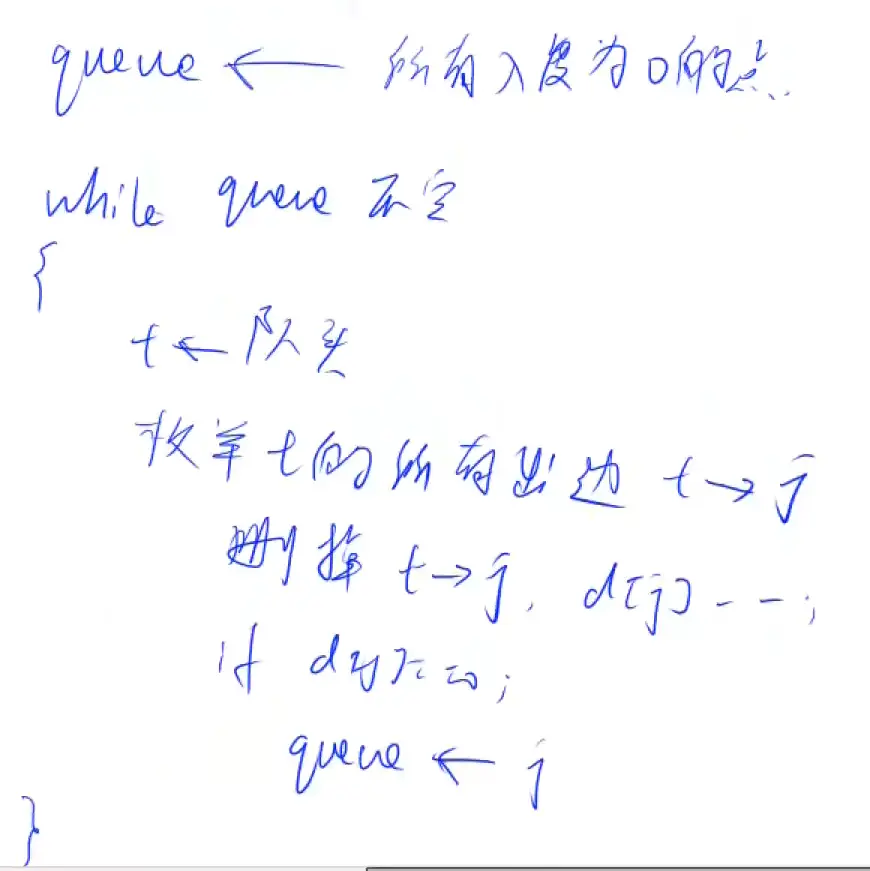 queue ← 所有入度为0的点
while queue 不空
{
t ← 队头
枚举 t 的所有出边 t → j
删掉 t → j, d[j] --;
if d[j] == 0;
queue ← j
}